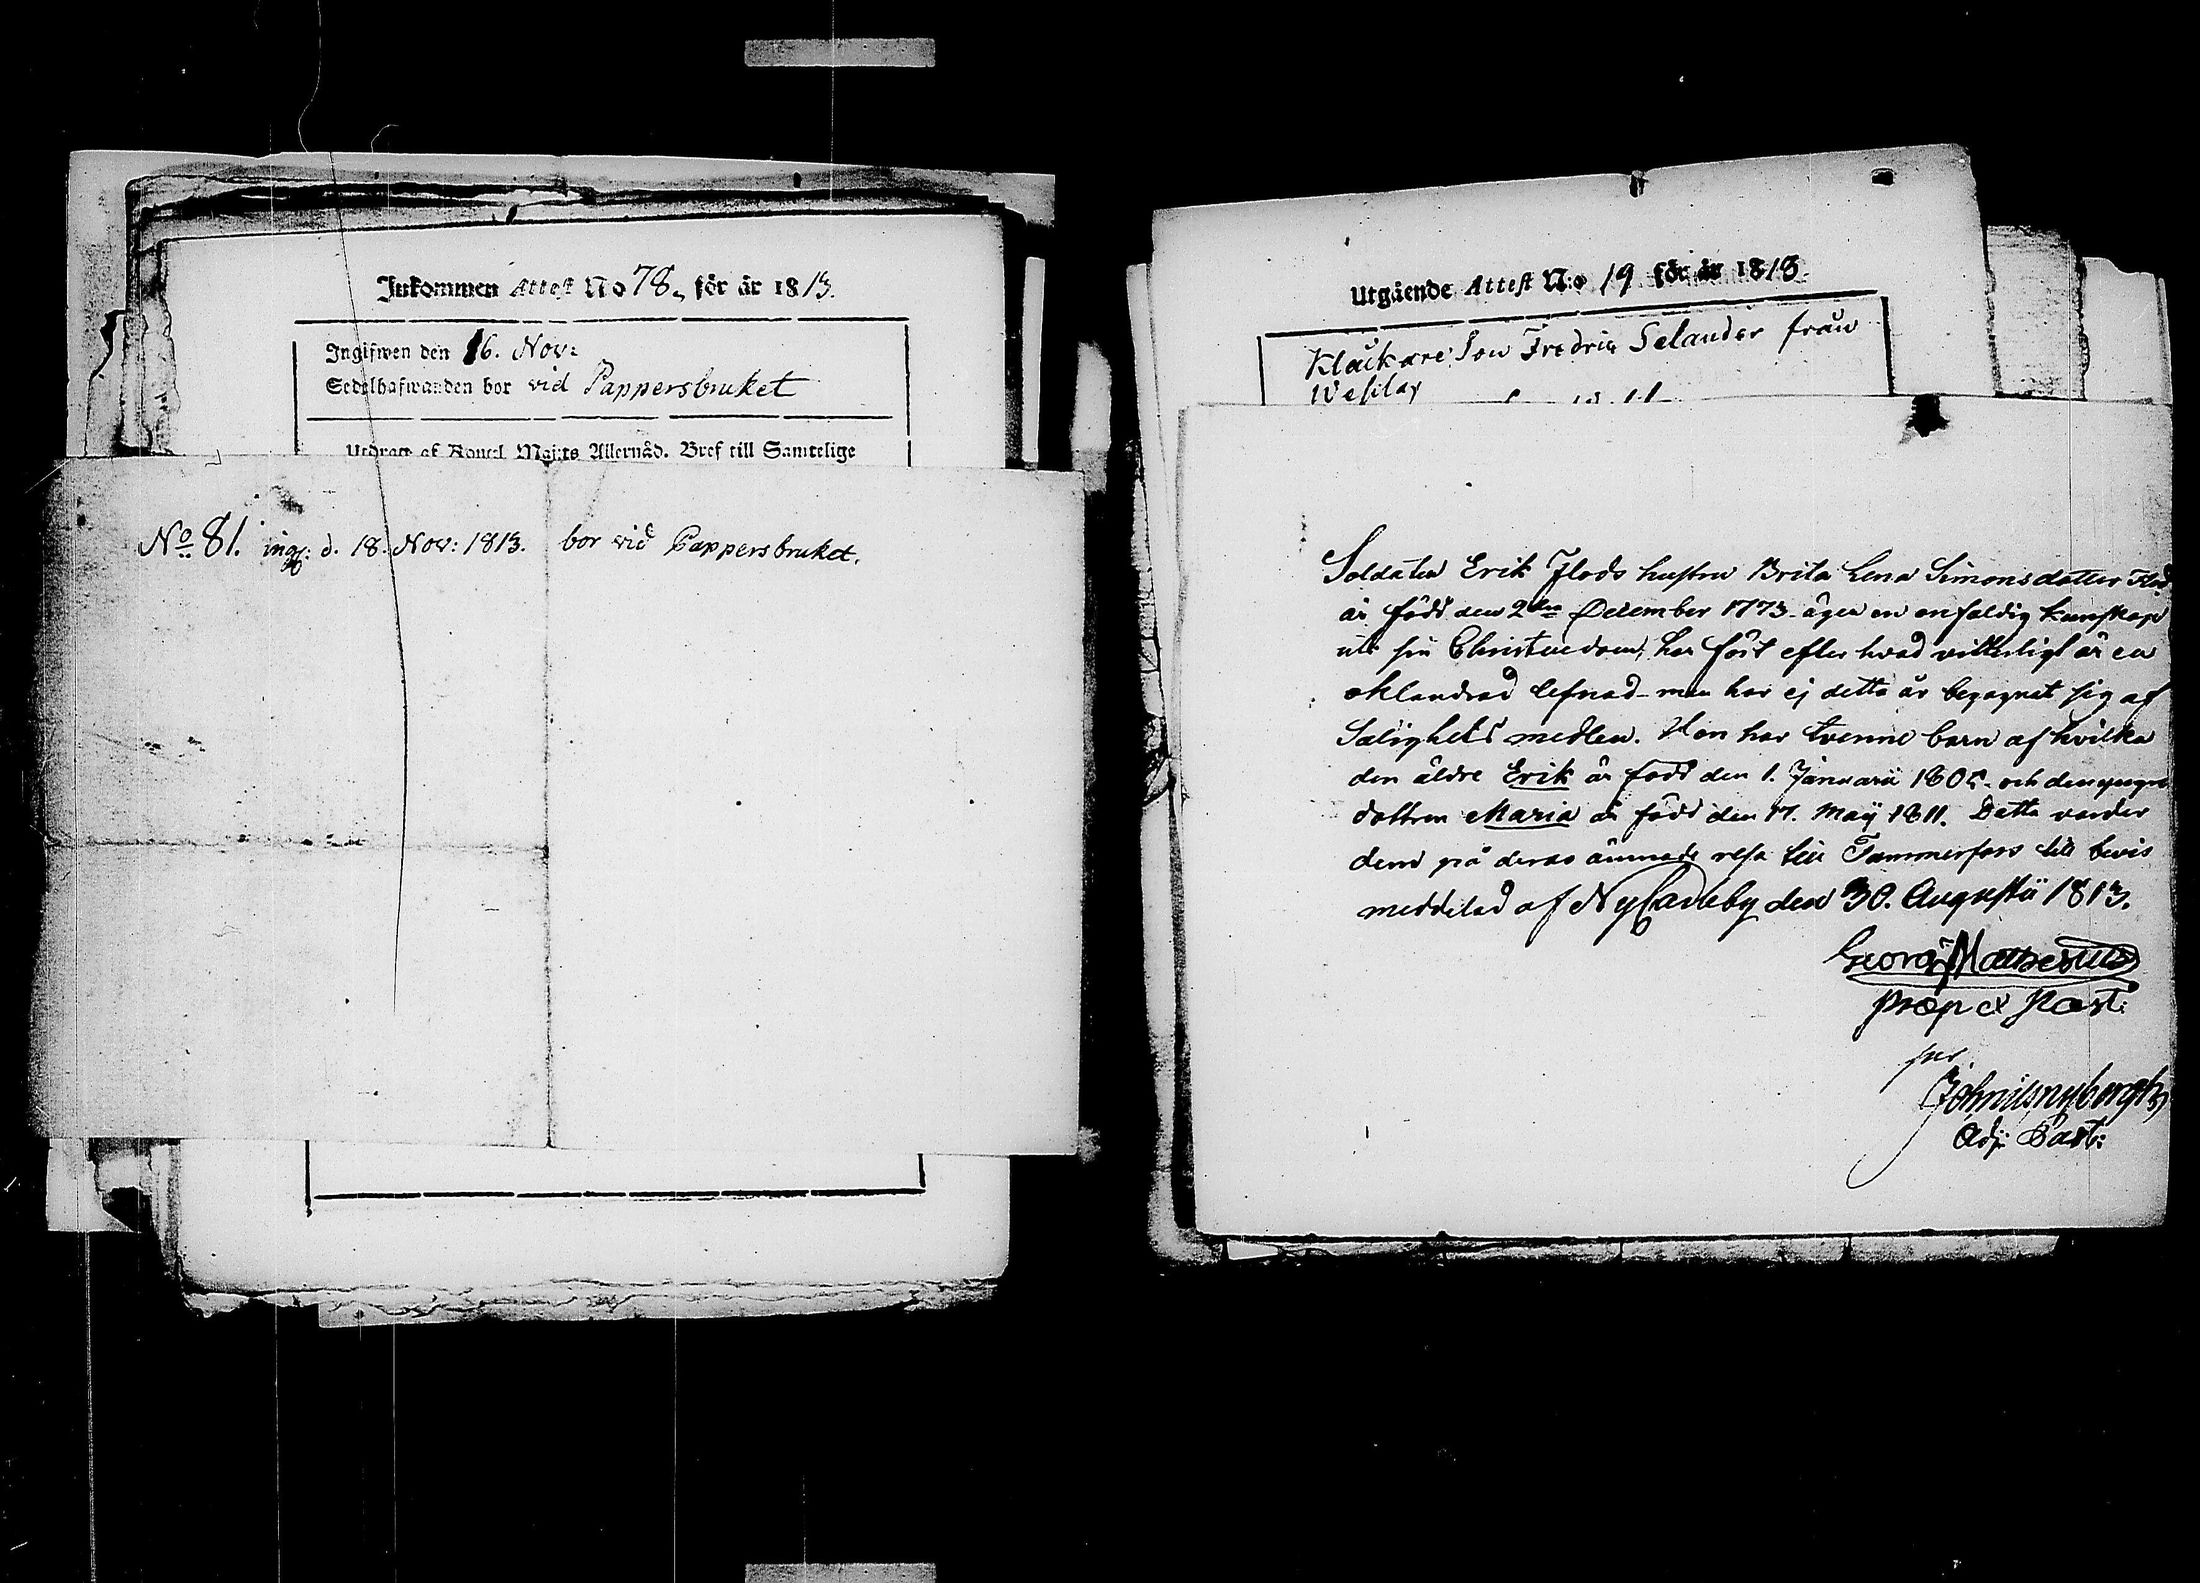 Inkommen Attest No 78. för år 1813.
Ingifwen den 16. Nov:
Sedelhafwanden bor vid Pappersbruket
Utdrag af Kongl. Maj:ts Allernåd. Bref till Samtelige
No 81. ing: d. 18. Nov: 1813. bor vid Pappersbruket.
Utgående Attest N:o 19 för år 1813.
Klåckare Son Fredric Selander från
Wesilax
Soldaten Erik Flods hustru Brita Lena Simonsdotter Flod
är född den 2den December 1773. äger en enfaldig kunskap
uti sin Christendom, har fört efter hvad vitterligt är en
oklandrad lefnad men har ej detta år begagnat sig af
Salighets medlen. Hon har tvenne barn af hvilka
den äldre Erik är född den 1. Januarii 1805. och den yngre
dottren Maria är född den 17. Maÿ 1811. Detta varder
dem på deras ämnade resa till Tammerfors till bevis
meddelad af NyCarleby den 30. Augustii 1813.
Georg Mathesius
Præp et Past:
per
Joh nybergh
Adj: Past: